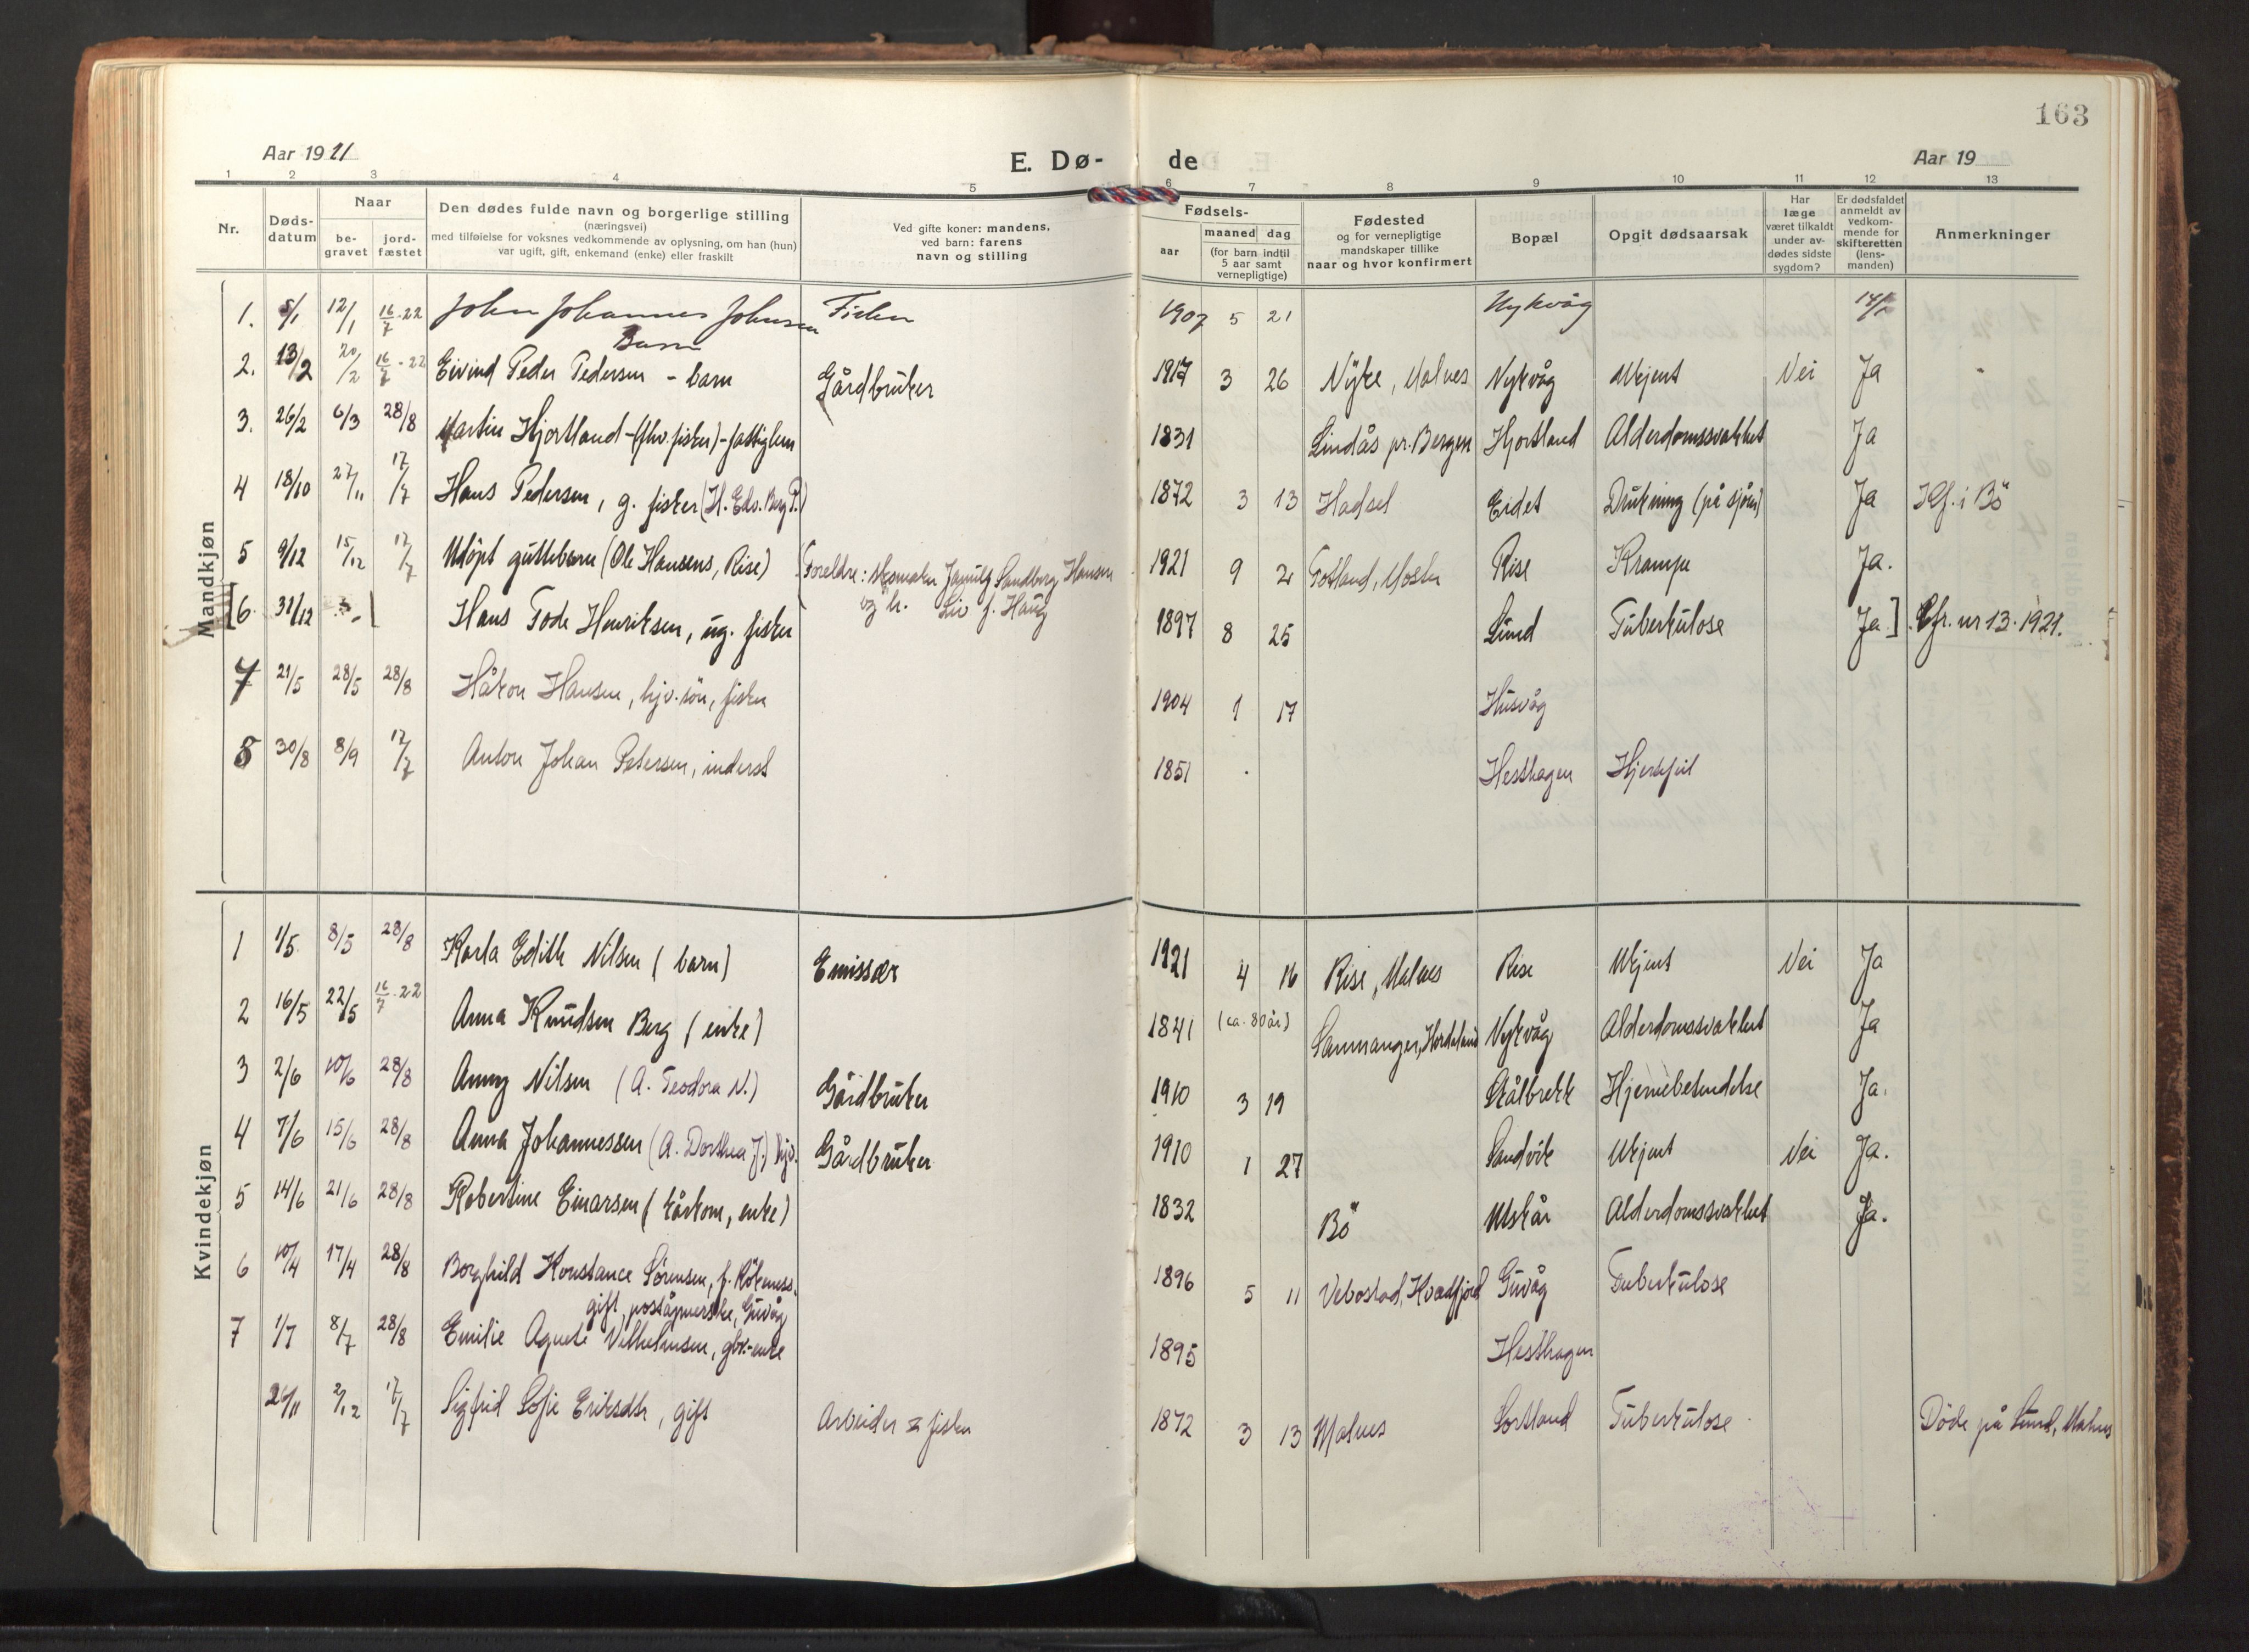 163
Aar 1921
E. Dø-
de
Aar 19
1 2 3 4 5 6 7 8 9 10 11 12 13
Nr.
Døds-
datum
Naar
be-
gravet
jord-
fæstet
Den dødes fulde navn og borgerlige stilling
(næringsvei)
med tilføielse for voksnes vedkommende av oplysning, om han (hun)
var ugift, gift, enkemand (enke) eller fraskilt
Ved gifte koner: mandens,
ved barn: farens
navn og stilling
Fødsels-
aar
maaned dag
(for barn indtil
5 aar samt
vernepligtige)
Fødested
og for vernepligtige
mandskaper tillike
naar og hvor konfirmert
Bopæl
Opgit dødsaarsak
Har
læge
været tilkaldt
under av-
dødes sidste
sygdom?
Er dødsfaldet
anmeldt av
vedkom-
mende for
skifteretten
(lens-
manden)
Anmerkninger
Mandkjøn
1. 5/1 12/1 16/7-22 John Johannes Johnsen Fisker 1907 5 21 Nykvåg
Barn
2. 13/2 20/2 16/7-22 Eivind Peder Pedersen - barn Gårdbruker 1917 3 26 Nÿke, Malnes Nykvåg Ukjent Nei Ja
3. 26/2 6/3 28/8 Martin Hjortland - (fhv. fisker) - fattiglem 1831 Lindås pr. Bergen Hjortland Alderdomssvakhet Ja
4 18/10 27/11 17/7 Hans Pedersen, g. fisker (H. Edv. Berg P.) 1872 3 13 Hadsel Eidet Drukning (på sjöen) Ja Kf. i Bö
5 9/12 15/12 17/7 Udöpt guttebarn (Ole Hansens, Rise) (Foreldre: Sandberg Hansen 1921 9 2 Rise Krampe Ja.
og h. Liv f. Haug
[6. 31/12 Hans Tode Henriksen, ug. fisker 1897 8 25 Lund Tuberkulose Ja] Cfr. nr 13. 1921.
7 21/5 28/5 28/8 Håkon Hansen, hjv. sön, fisker 1904 1 17 Husvåg
8 30/8 8/9 17/7 Anton Johan Petersen, inderst 1851 Hesthagen Hjertefeil
Kvindekjøn
1 1/5 8/5 28/8 Karla Edith Nilsen (barn) Emissær 1921 4 16 Rise, Malnes Rise Ukjent Nei Ja
2 16/5 22/5 16/7-22 Anna Knudsen Berg (enke) 1841 (ca. 80 år) Samnanger, Hordaland Nykvåg Alderdomssvakhet Ja
3 2/6 10/6 28/8 Anny Nilsen (A. Teodora N.) Gårdbruker 1910 3 19 Stålbrekk Hjernebetendelse Ja.
4 7/6 15/6 28/8 Anna Johannessen (A. Dorthea J.) hjv. Gårdbruker 1910 1 27 Sandvik Ukjent Nei Ja.
5 14/6 21/6 28/8 Robertine Einarsen (kårkom, enke) 1832 Bö Utskår Alderdomssvakhet Ja.
6 10/4 17/4 28/8 Borghild Konstance Sørensen, f. 1896 5 11 Vebostad, Kvædfjord Guvåg Tuberkulose
gift, poståpnerske, Guvåg
7 1/7 8/7 28/8 Emilie Agnete Vilhelmsen, gbr.-enke 1895 Hesthagen
26/11 2/12 17/7 Sigfrid Sofie Eriksdtr, gift Arbeider & fisker 1872 3 13 Malnes Sortland Tuberkulose Döde på Lund, Malnes